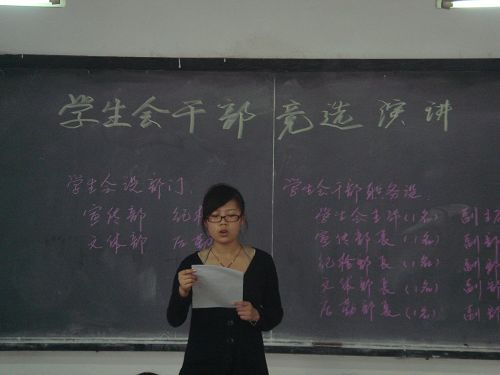 学生会干部竞选演讲
学生会设部门:
宣传部 纪
文体部 后勤
学生会干部职务设
学生会主席(1名) 副
宣传部長(1名) 副部
纪检部長(1名) 副部
文体部長(1名) 副部
后勤部長(1名) 副部